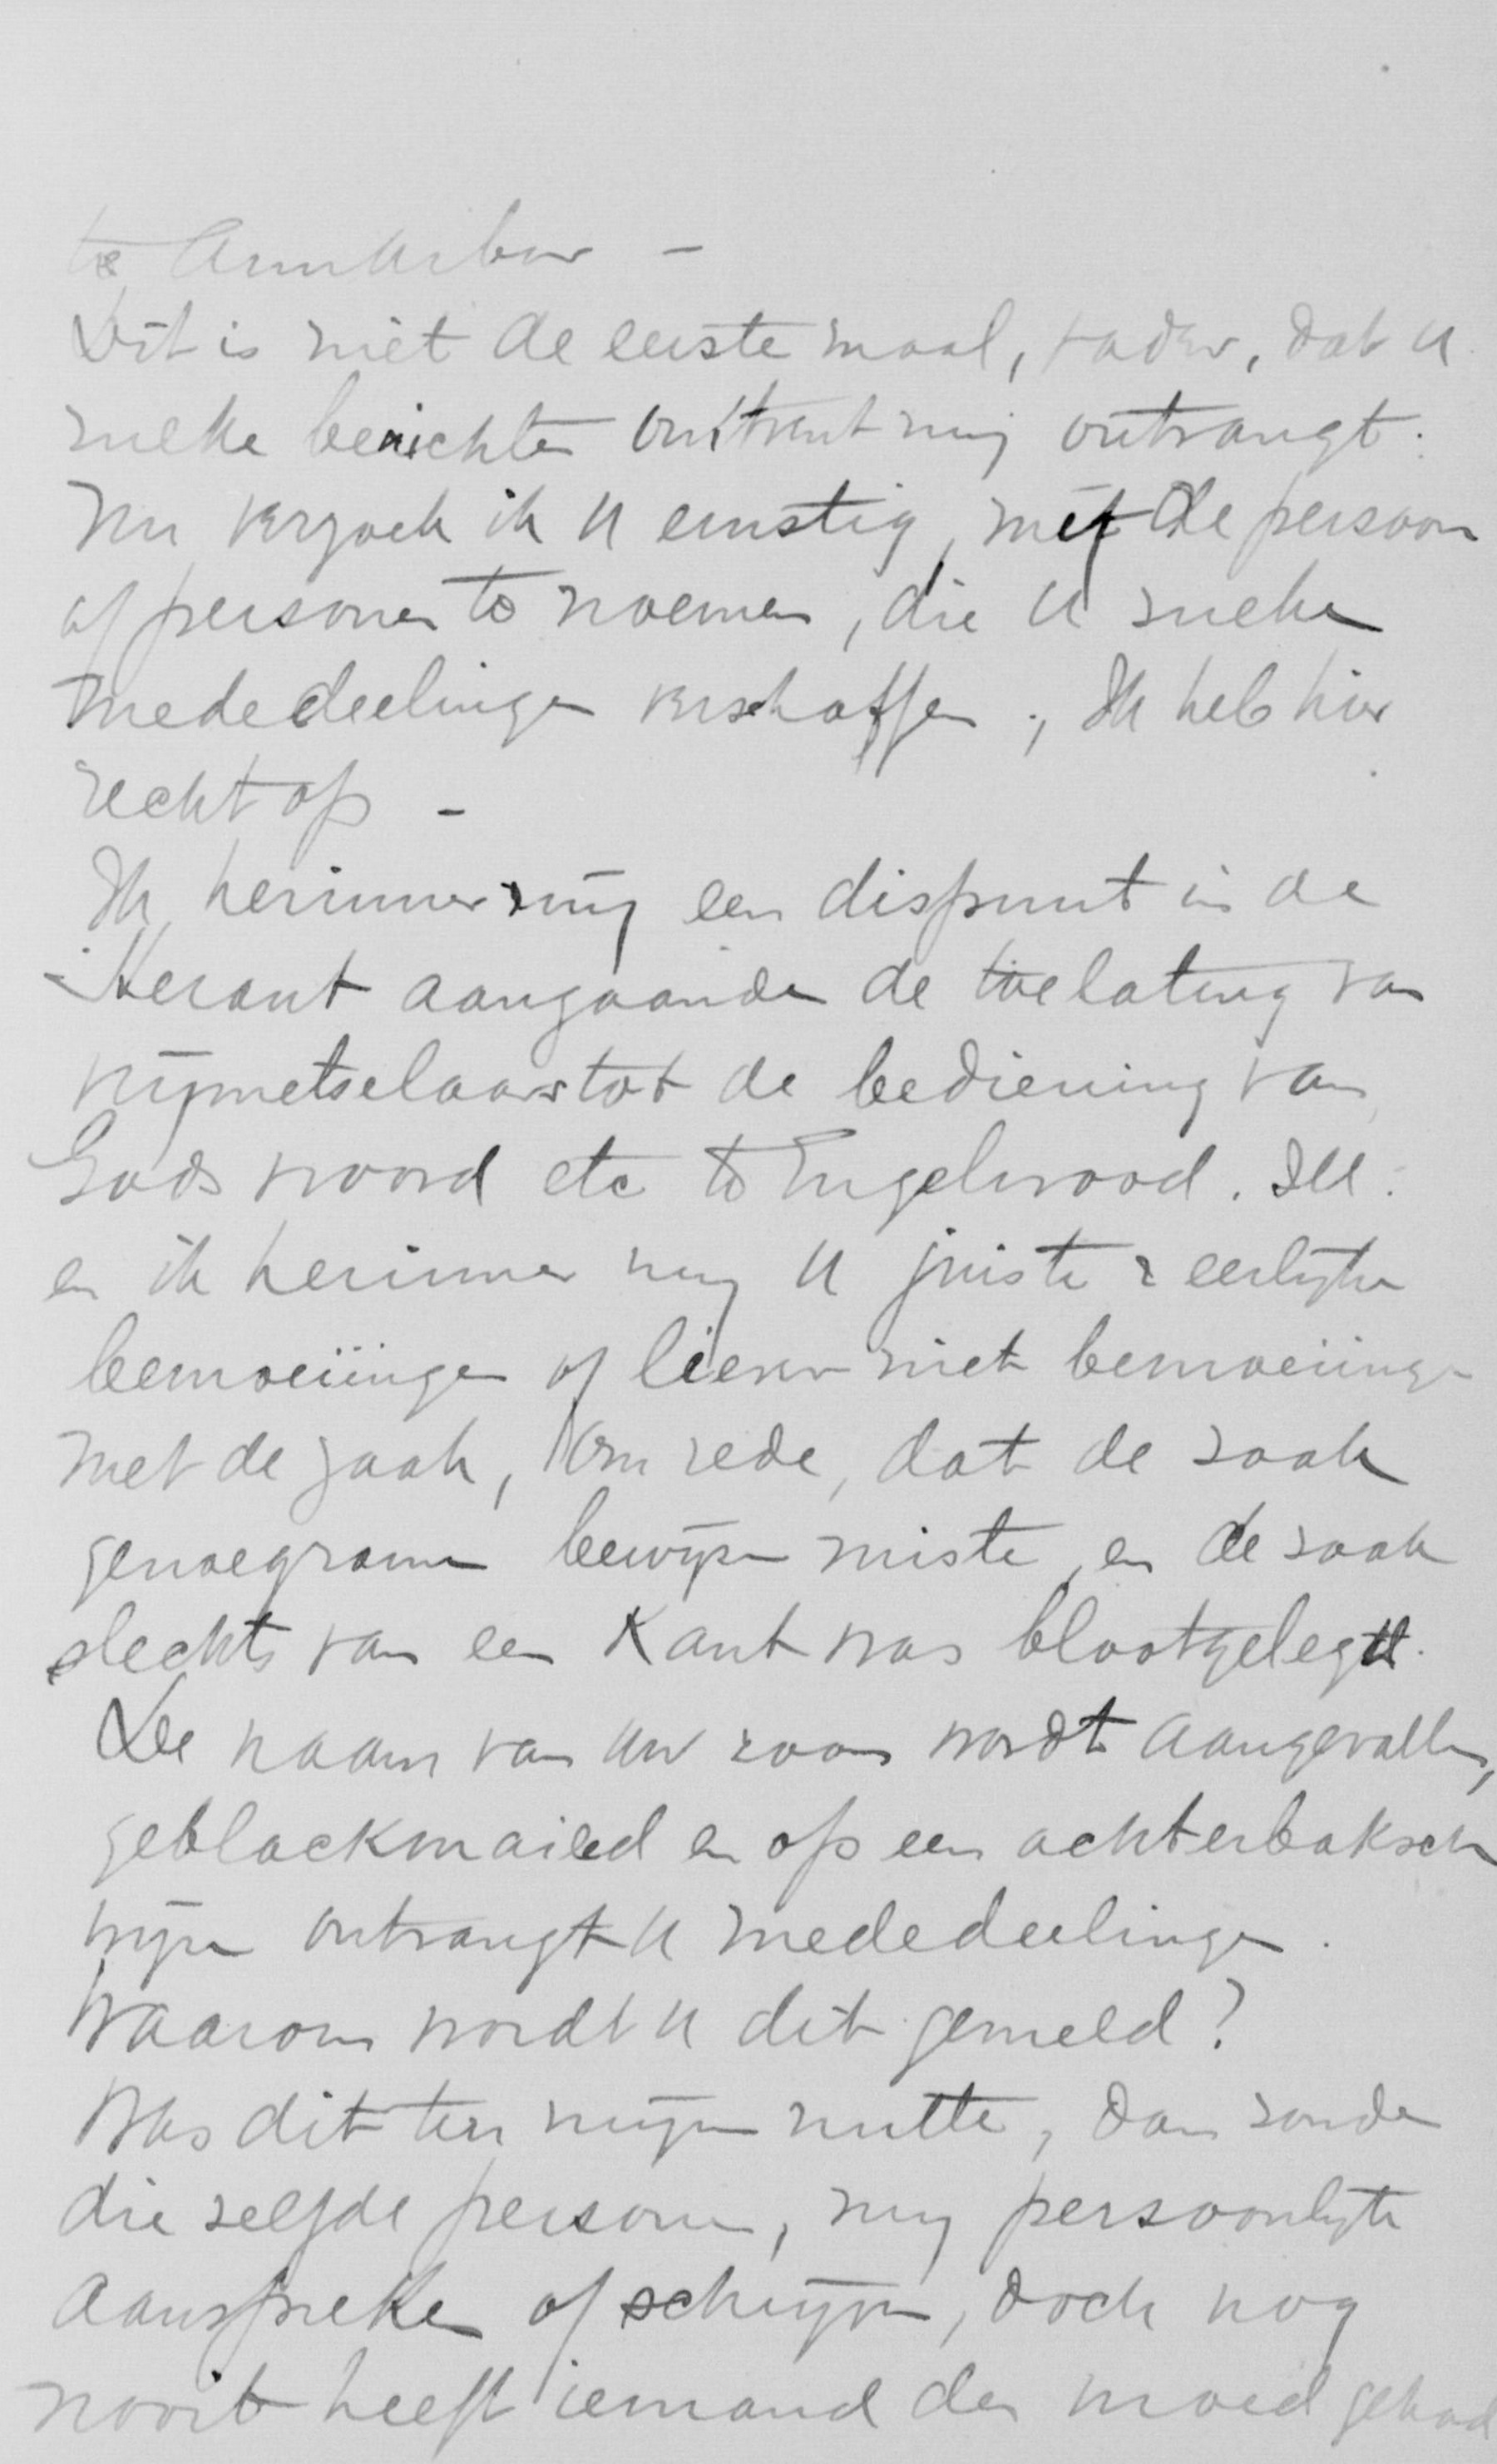 te Ann Arbor -
Dit is niet de eerste maal, vader, dat u
zulke berichten omtrent mij ontvangt.
Nu verzoek ik u ernstig, mij de persoon
of personen te noemen, die u zulke
mededeelingen verschaffen; Ik heb hier
recht op -
Ik herinner mij een dispuut in de
Heraut aangaande de toelating van
vrijmetselaars tot de bediening van
Gods woord etc te Engelwood. Ill.
en ik herinner mij u juiste & eerlijke
bemoeiingen of liever niet bemoeiingen
met de zaak, om rede, dat de zaak
genoegzame bewijzen miste, en de zaak
slechts van een kant was blootgelegd.
De naam van uw zoon wordt aangevallen,
geblackmailed en op een achterbaksche
wijze ontvangt u mededeelingen.
Waarom wordt u dit gemeld?
Was dit ten mijne nutte, dan zouden
die zelfde personen, mij persoonlijk
aanspreken of schrijven, doch nog
nooit heeft iemand den moed gehad